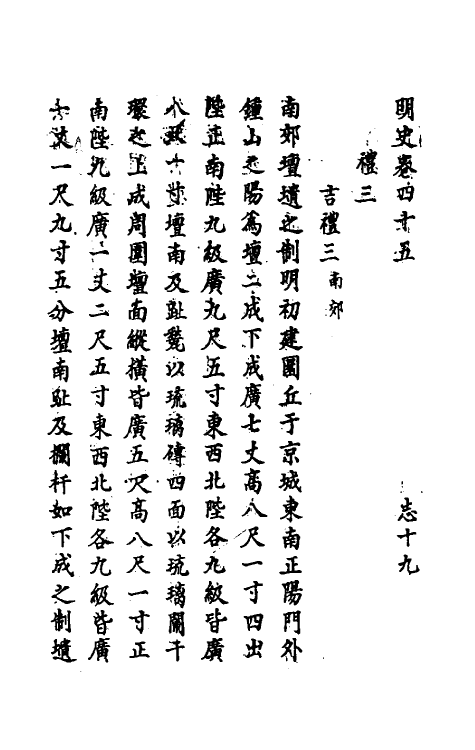 明史卷四十五　志十九
禮三
吉禮三 南郊
南郊壇壝之制明初建圜丘于京城東南正陽門外
鍾山之陽為壇二成下成廣七丈高八尺一寸四出
陛正南陛九級廣九尺五寸東西北陛各九級皆廣
八 壇南及趾甃以琉璃磚四面以琉璃闌干
環之上成周圍壇面縱橫皆廣五 尺高八尺一寸正
南陛九級廣一丈二尺五寸東西北陛各九級皆廣
丈一尺九寸五分壇南趾及欄杆如下成之制壝